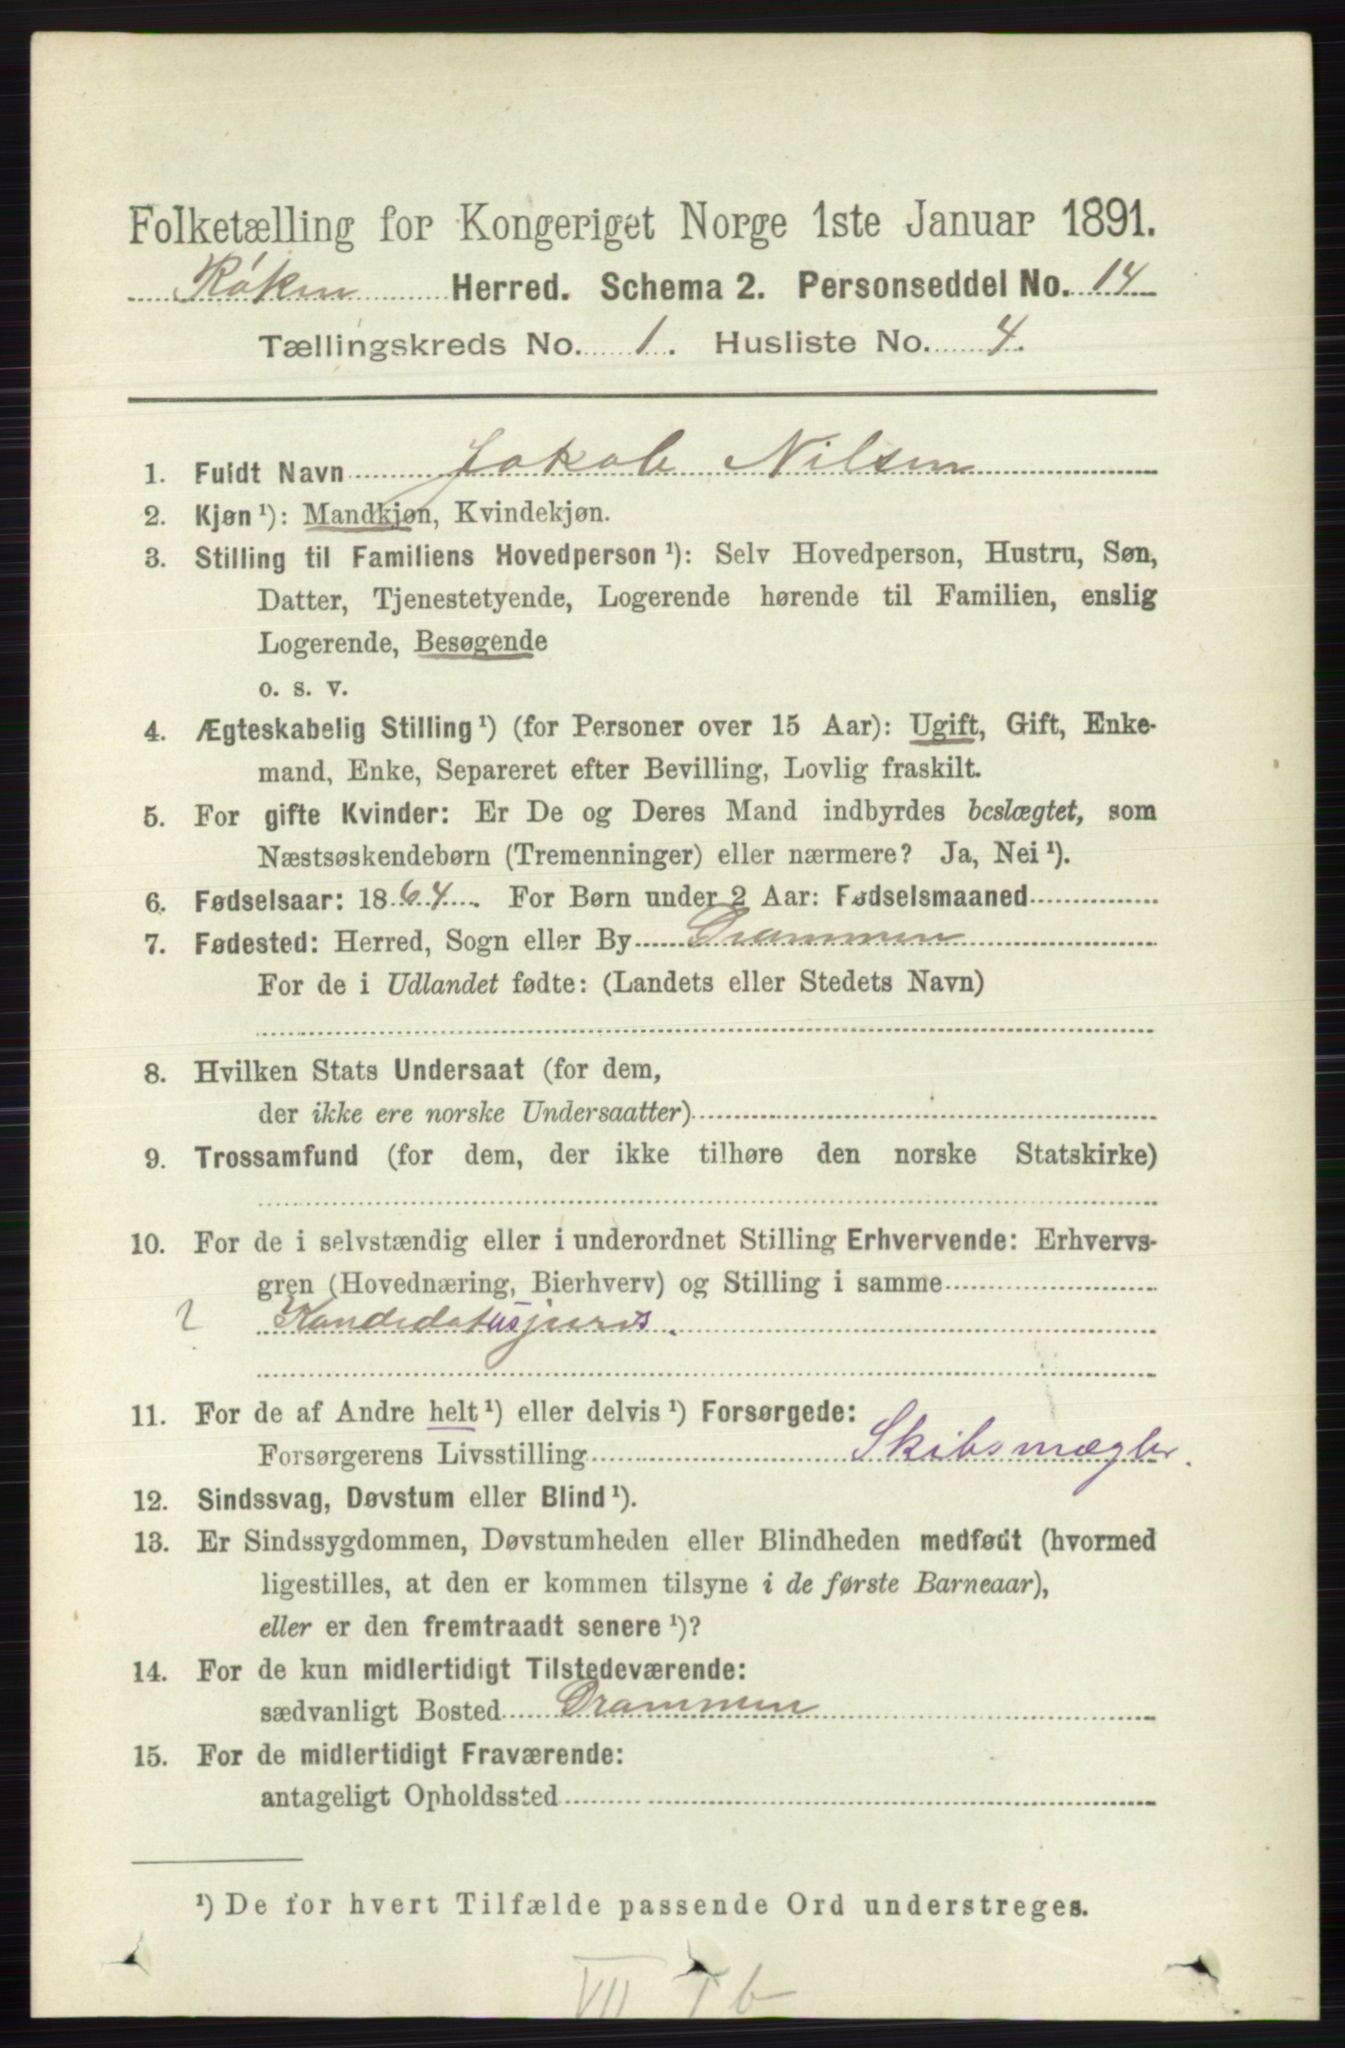 Folketælling for Kongeriget Norge 1ste Januar 1891.
Røken Herred. Schema 2. Personseddel No. 14
Tællingskreds No. 1. Husliste No. 4.
1. Fuldt Navn Jakob Nilsen
2. Kjøn¹): Mandkjøn, Kvindekjøn.
3. Stilling til Familiens Hovedperson¹): Selv Hovedperson, Hustru, Søn,
Datter, Tjenestetyende, Logerende hørende til Familien, enslig
Logerende, Besøgende
o. s. v.
4. Ægteskabelig Stilling¹) (for Personer over 15 Aar): Ugift, Gift, Enke-
mand, Enke, Separeret efter Bevilling, Lovlig fraskilt.
5. For gifte Kvinder: Er De og Deres Mand indbyrdes beslægtet, som
Næstsøskendebørn (Tremenninger) eller nærmere? Ja, Nei¹).
6. Fødselsaar: 1864. For Børn under 2 Aar: Fødselsmaaned
7. Fødested: Herred, Sogn eller By Drammen
For de i Udlandet fødte: (Landets eller Stedets Navn)
8. Hvilken Stats Undersaat (for dem,
der ikke ere norske Undersaatter)
9. Trossamfund (for dem, der ikke tilhøre den norske Statskirke)
10. For de i selvstændig eller i underordnet Stilling Erhvervende: Erhvervs-
gren (Hovednæring, Bierhverv) og Stilling i samme
Kandidatusjuris.
11. For de af Andre helt¹) eller delvis¹) Forsørgede:
Forsørgerens Livsstilling Skibsmægler.
12. Sindssvag, Døvstum eller Blind¹).
13. Er Sindssygdommen, Døvstumheden eller Blindheden medfødt (hvormed
ligestilles, at den er kommen tilsyne i de første Barneaar),
eller er den fremtraadt senere¹)?
14. For de kun midlertidigt Tilstedeværende:
sædvanligt Bosted Drammen
15. For de midlertidigt Fraværende:
antageligt Opholdssted
¹) De for hvert Tilfælde passende Ord understreges.
VII I b